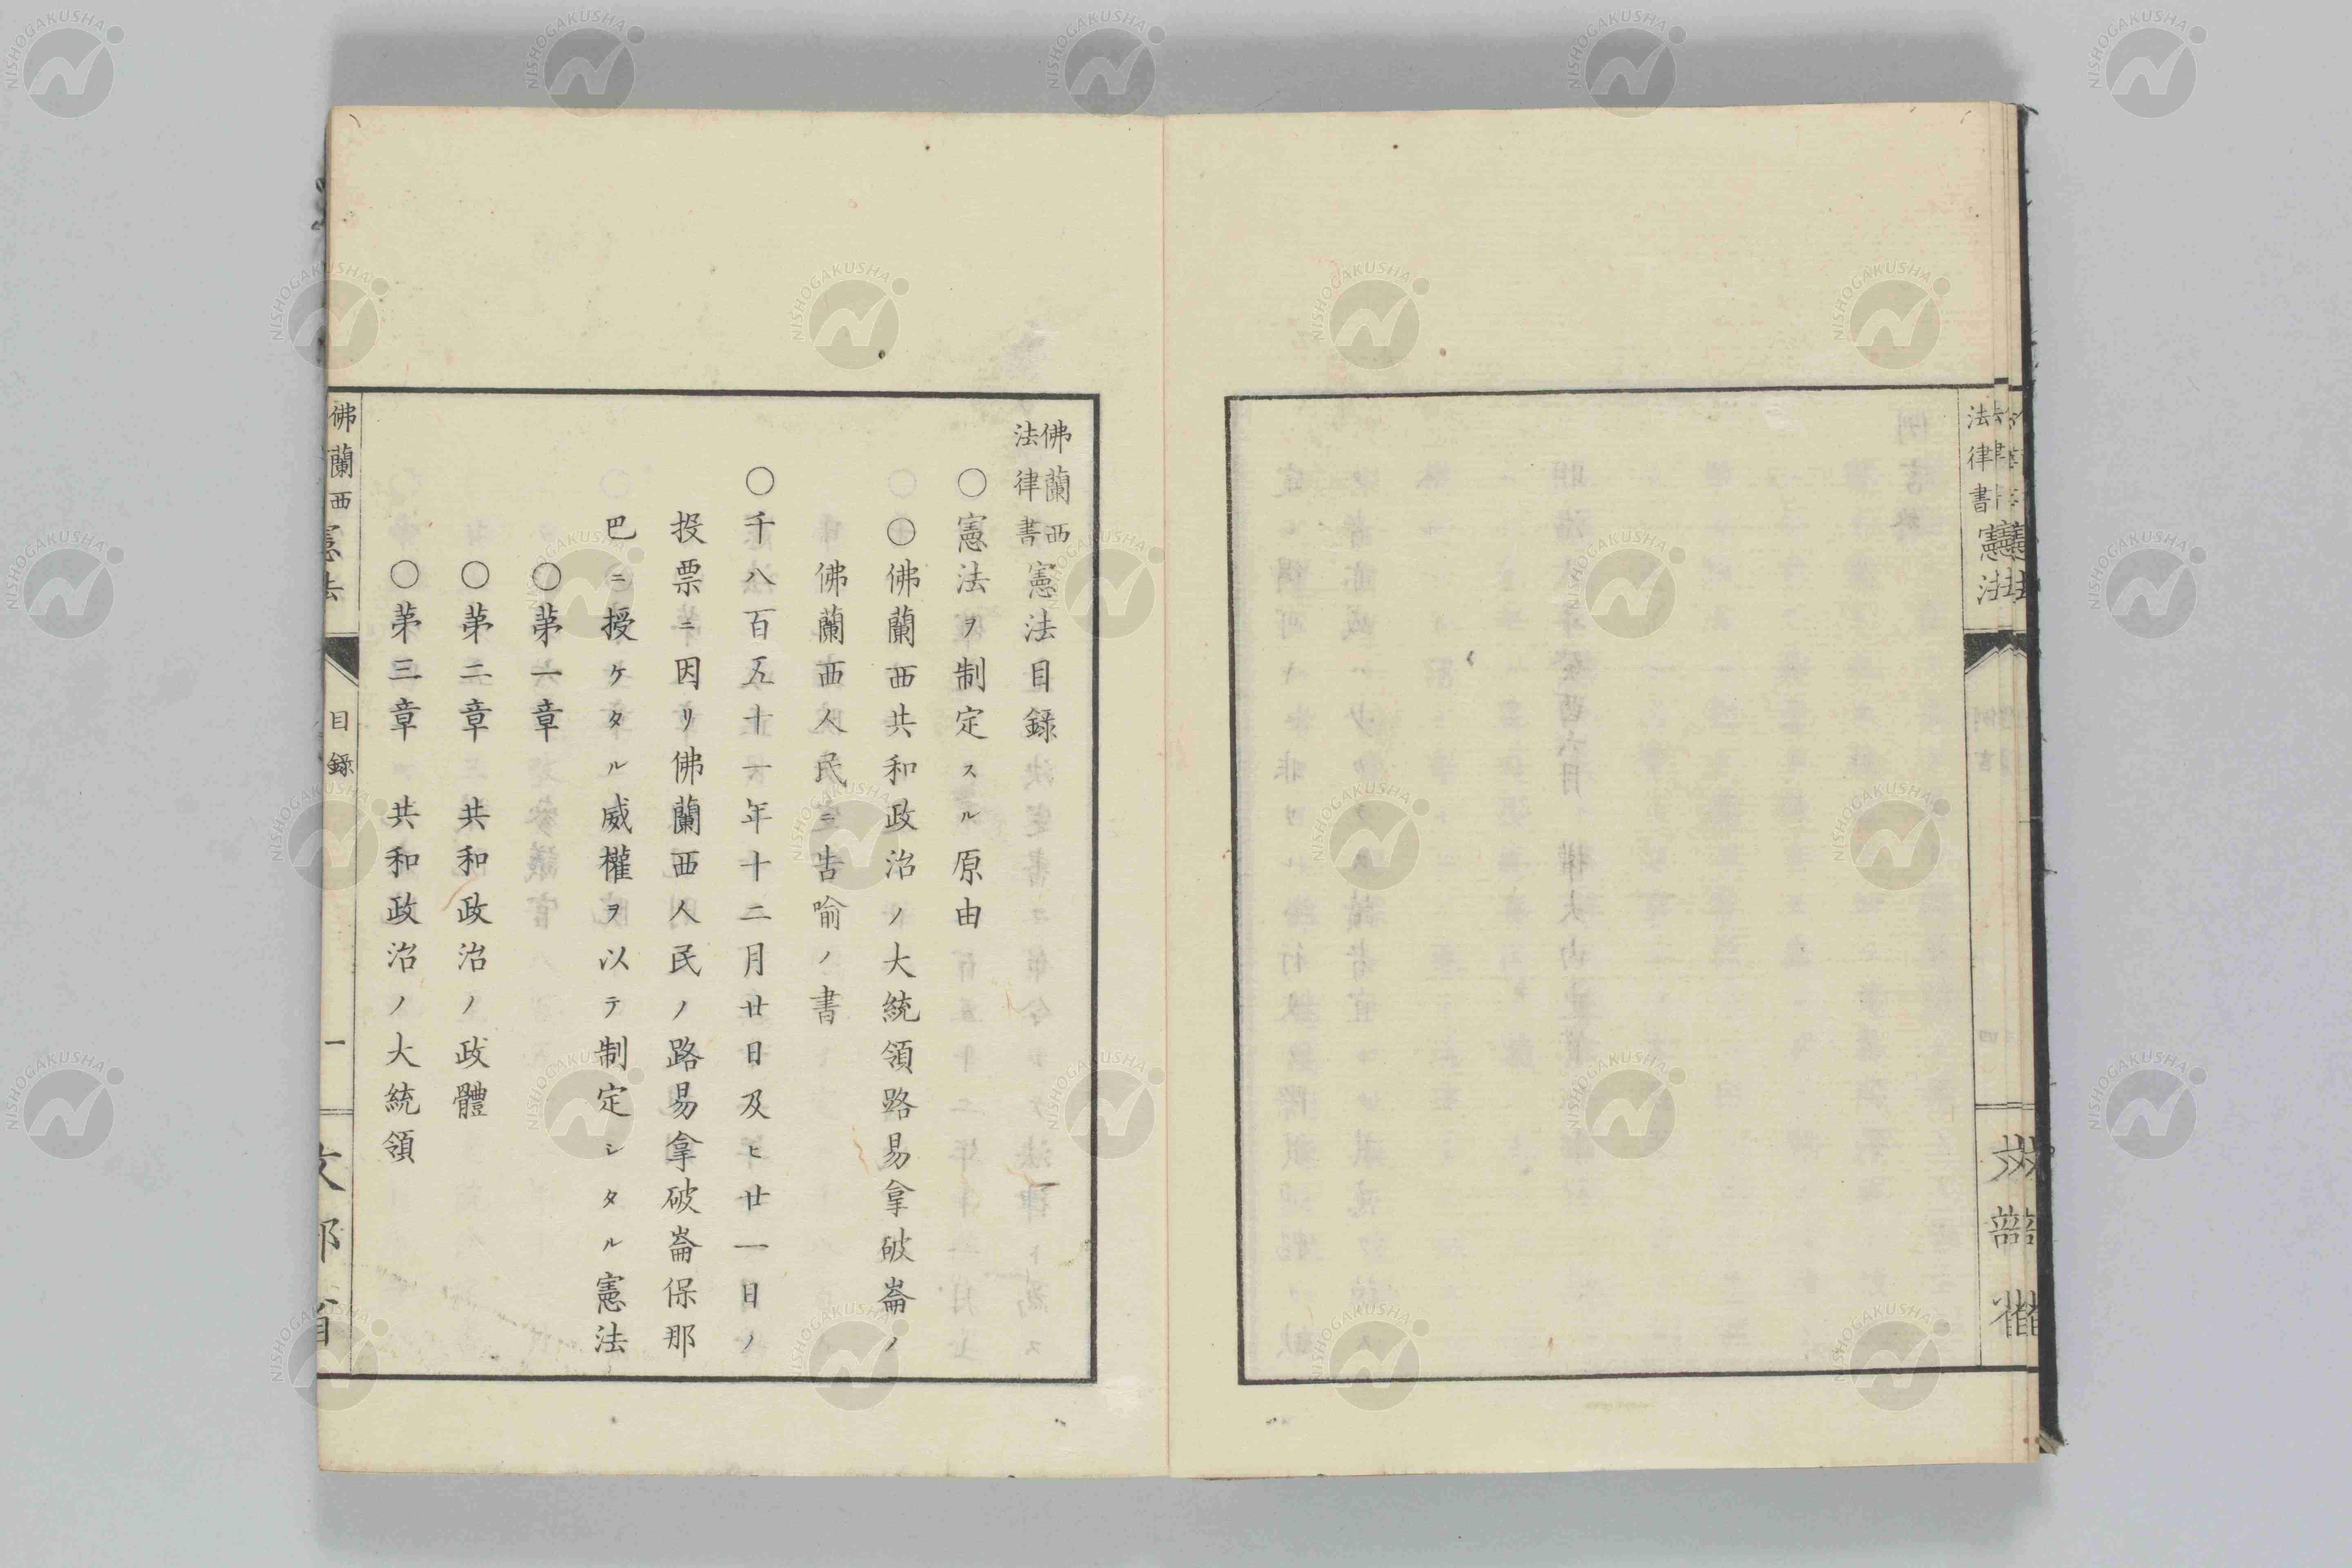 法律書 憲法
佛蘭西法律書 憲法目録
〇憲法ヲ制定スル原由
〇佛蘭西共和政治ノ大統領路易拿破崙ノ
佛蘭西人民ニ告喻ノ書
〇千八百五十一年十二月廿日及ヒ廿一日ノ
投票ニ因リ佛蘭西人民ノ路易拿破崙保那
巴ニ授ケタル威權ヲ以テ制定シタル憲法
〇苐一章
〇苐二章 共和政治ノ政體
〇苐三章 共和政治ノ大統領
佛蘭西憲法 目録 一 文部省
NISHOGAKUSHA